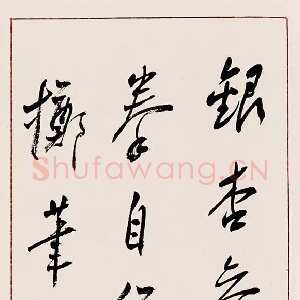 銀杏
拳自
擲筆
Shufawang.CN